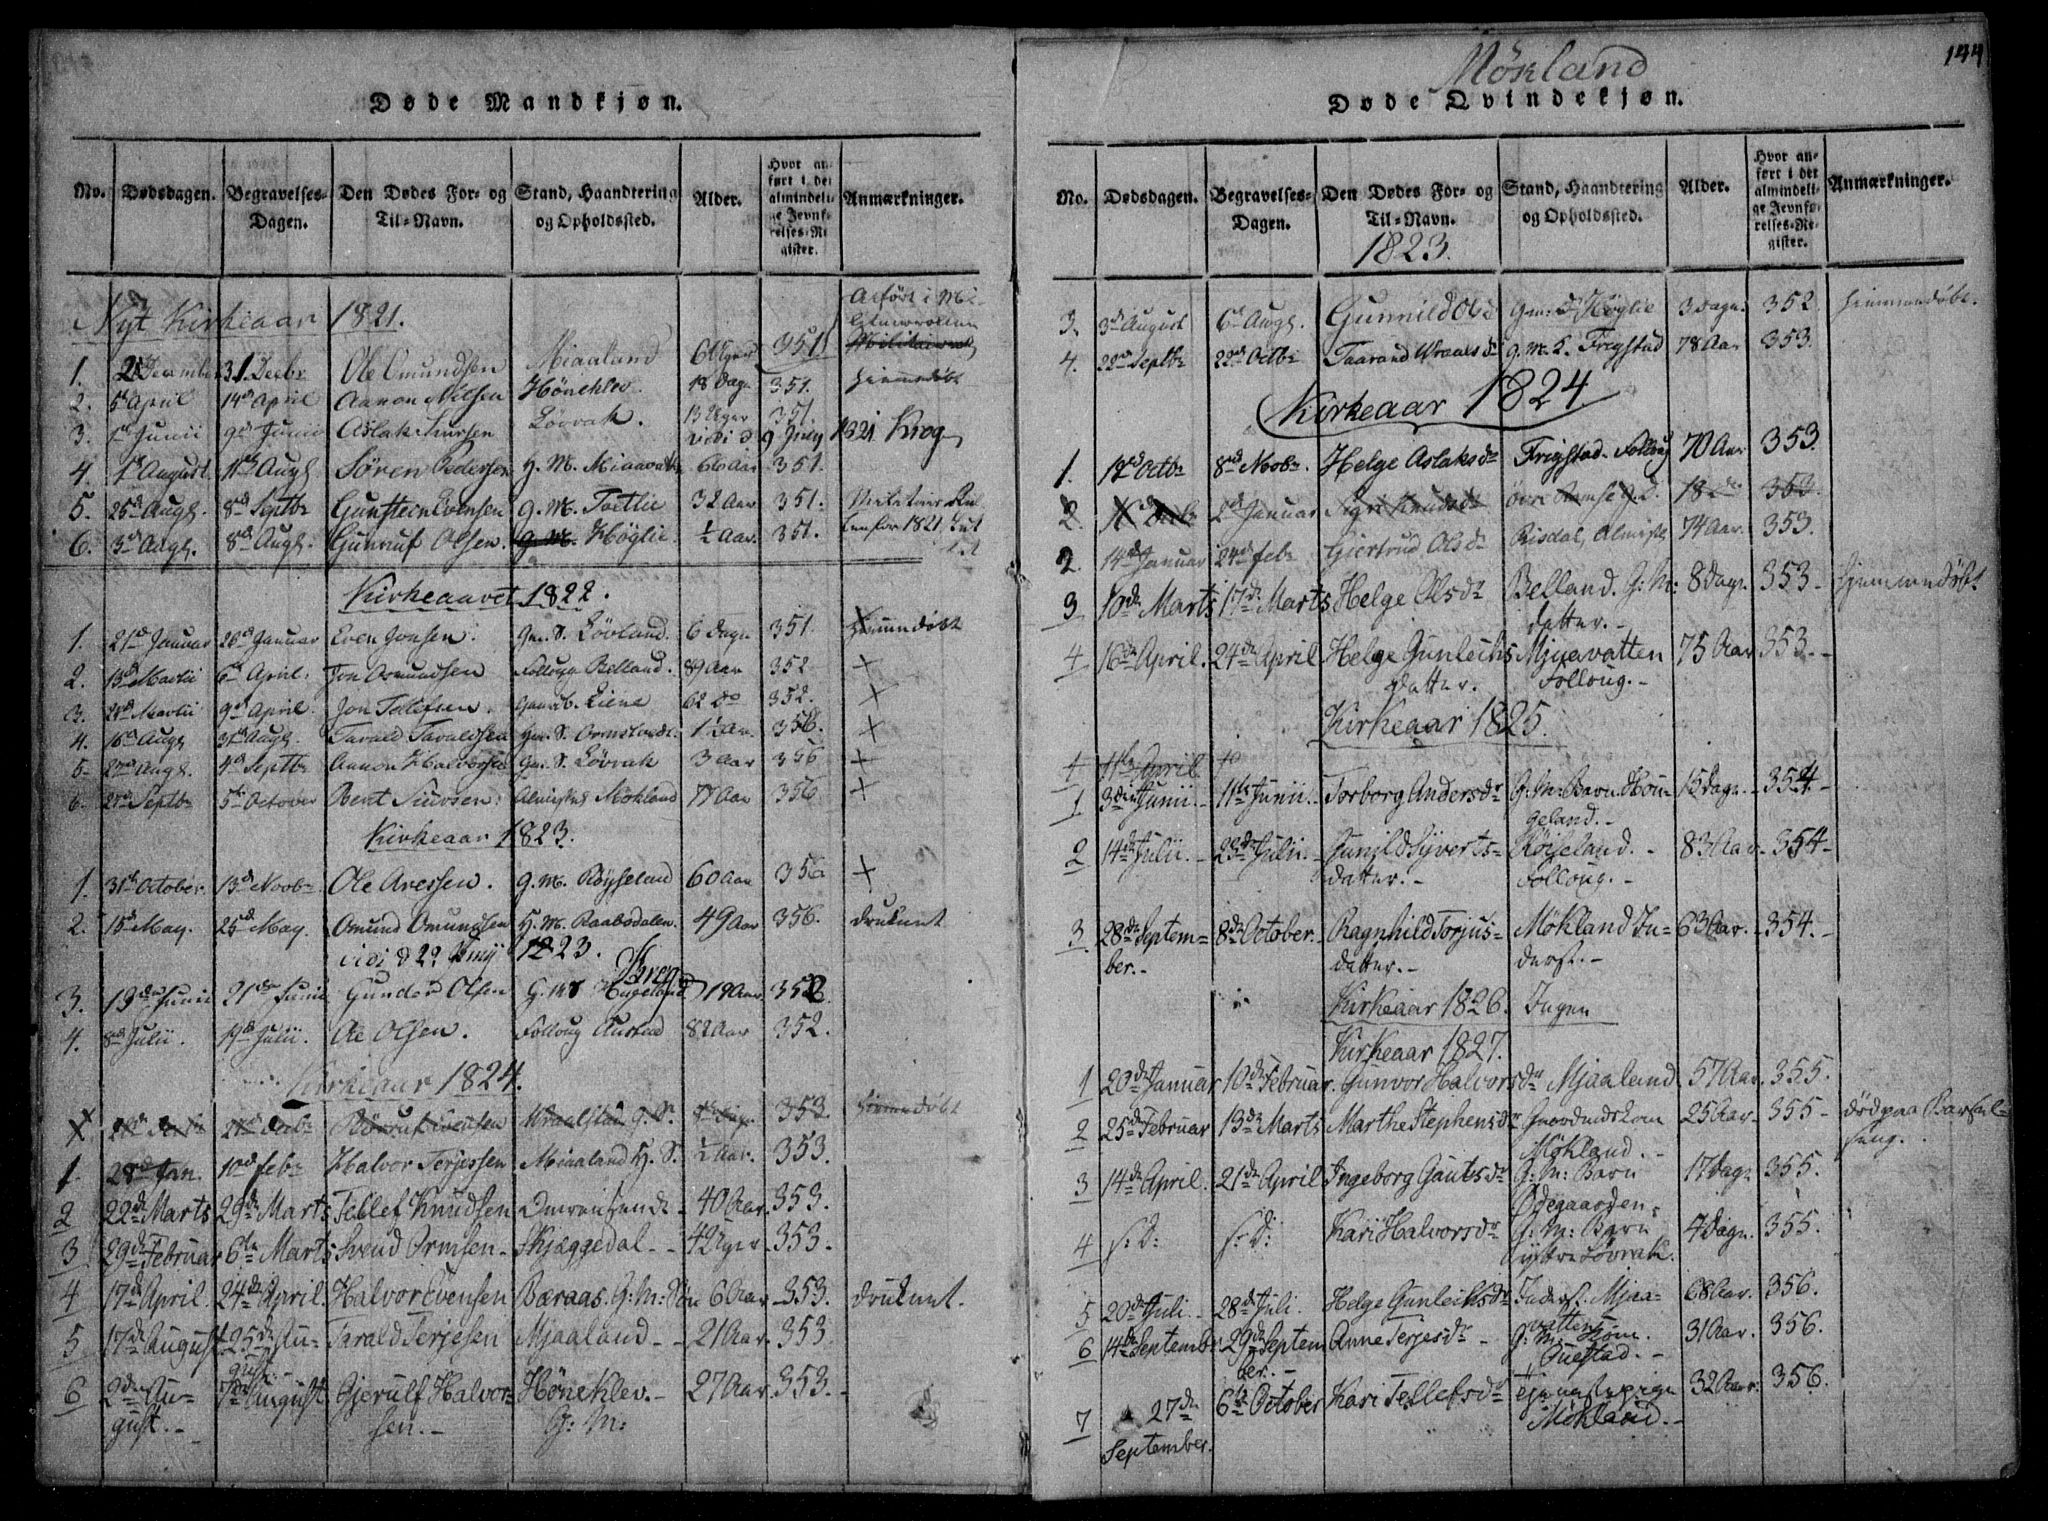 Døde Mandkjøn.
No. Dødsdagen. Begravelses-Dagen. Den Dødes For- og Til-Navn. Stand, Haandtering og Opholdssted. Alder. Hvor anført i det almindelige Jevnførelses-Register. Anmærkninger.
Nyt Kirkeaar 1821.
1. December 31. Decbr Ole Omundsen Miaaland 6 Uger 351
2. 5 April 14d April Aanon Nilsen Höneklev 18 Dage 351. hiemmedöbt
3. 1 Junii 9d Junii Aslak Sivrsen Lövvak. 13 Uger 351.
vidi d 9 July 1821 Krog
4. 1st August 11te Augs. Sören Pedersen H. M. Miaavatn 66 Aar 351.
5. 25d Augs. 8d Septbr Gunsteen Evensen g. M. Tveitlie 32 Aar 351.
6. 3d Augs. 8d Augs. Gunnuf Olsen. Höglie ½ Aar. 351.
Kirkeaaret 1822.
1. 21d Januar 26d Januar Even Jonsen. Gm. S. Lövland. 6 dage 351 hiemmedöbt
2. 13d Martii 6d April. Jon Omundsen Follougs Belland. 89 Aar 352 ×
3. 21d Martii 9d April. Jon Tellefsen. Liene 62 do 352. ×
4. 16d Augs 31d Augs. Tarald Taraldsen Gm. S. 1½ Aar. 356. ×
5. 27d Augs. 4d Septbr Aanon Halvorsen Gm. S. Lövvak 3 Aar 356 ×
6. 27d Septbr 5te October Bent Siursen. Almisses Mökland 77 Aar 356 ×
Kirkeaar 1823.
1. 31d October. 13d Novbr. Ole Aresen. g. M. Röyseland 60 Aar 356 ×
2. 15d May. 25d May. Omund Omundsen H. M. Raabsdalen. 49 Aar 356. druknet
vidi d 29 May 1823. Krog
3. 13de Junii 21de Junii Gunder Olsen G. M. S Hugeland 19 Aar 352.
4. 8d Julii. 19de Julii. Ae Olsen. Folloug Austad 82 Aar 352.
Kirkeaar 1824.
× Evensen Wraalstad G. S. 353. hiemmedöbt
1. 28d Jan. 10d febr Halvor Terjesen Miaaland H. S. ½ Aar. 353.
2 22de Marts 29de Marts Tellef Knudsen 40 Aar. 353.
3 29de Februar 6te Marts Svend Ormsen Skjæggedal 4 Uger 353.
4 17de April. 24de April. Halvor Evensen Bæraas. G: M: Søn 6 Aar. 353. druknet.
5 17de August 25de August. Tarald Terjesen Mjaaland 21 Aar 353.
6 2de August. 7de August Gjerulf Halvorsen. Höneklev. G: M: 27 Aar. 353.
Mökland
144
Døde Qvindekjøn.
No. Dødsdagen. Begravelses-Dagen. Den Dødes For- og Til-Navn. Stand, Haandtering og Opholdssted. Alder. Hvor anført i det almindelige Jevnførelses-Register. Anmærkninger.
1823.
3. 3d August 6d Augs. Gunnild Gm: D Höglie 3 dage. 352 hiemmedöbt.
4. 22d Septbr 22d Octbr Taarand Wraals dr g. M. E. Frigstad 78 Aar 353.
Kirkeaar 1824
1. 12d Octbr 8d Novbr. Helge Aslaksdr Frigstad. Folloug 70 Aar 353.
2. 2d Januar Sigri Knudsdr övre Ramse g. D. 18 353.
2. 14de Januar 24de febr Gjertrud Olsdr Risdal, Almisse 74 Aar. 353.
3 10de Marts 17de Marts Helge Olsdr Belland. G: M: datter. 8 dage. 353. hjemmedöbt
4 16de April. 24de April Helge Gunleiksdatter. Mjaavatten Folloug. 75 Aar 353.
Kirkeaar 1825.
1 11te April 10
1 3die Junii. 11te Junii. Torborg Andersdr G: M: Barn Hougeland. 15 dage. 354
2 14de Julii. 23de Julii. Gunild Syvertsdatter. Röiseland. Folloug. 83 Aar. 354
3 28de September. 8de October. Ragnhild Torjusdatter. Mökland Inderst. 63 Aar. 354.
Kirkeaar 1826. Ingen
Kirkeaar 1827.
1 20de Januar 10de Februar. Gunvor Halvorsdr Mjaaland 57 Aar. 355.
2 25de Februar 13de Marts Marthe Stephensdr Mökland. 25 Aar. 355 död paa Barselseng.
3 14de April. 21de April Ingeborg Gautsdr G: M: Barn Ødegaarden. 17 dage. 355.
4 s: D: s: D: Kari Halvorsdr G: M: Barn yttre Lövvak. 4 dage. 355.
5 20de Juli. 28de Juli. Helge Gunleiksdr Inderst. Mjaavatten 68 Aar. 356.
6 14de September 29de September. Anne Terjesdr G: M: Kone. Questad. 31 Aar. 356.
7 27de September. 6te October Kari Tellefsdr Mökland. 32 Aar. 356.